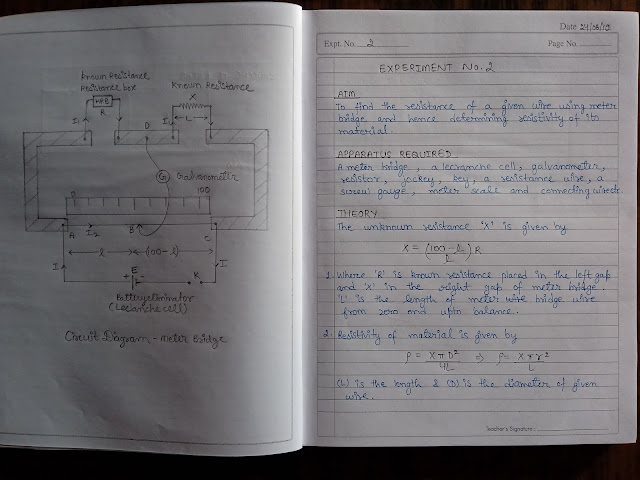 known Resistance
Resistance box
R
Known Resistance
X
L
I
I
D
G
Galvanometer
0
100
A
I2
B
C
l
(100-l)
I
I
E
+
-
K
Battery eliminator
(Leclanche cell)
Circuit Diagram - meter bridge
Date 24/06/19
Expt. No. 2
Page No.
EXPERIMENT No. 2
AIM
To find the resistance of a given wire using meter
bridge and hence determining resistivity of its
material.
APPARATUS REQUIRED
A meter bridge, a leclanche cell, galvanometer,
resistor, jockey, key, a resistance wire, a
screw gauge, meter scale and connecting wires
THEORY
The unknown resistance 'X' is given by
X = (100-l)/l R
1. Where 'R' is known resistance placed in the left gap
and 'X' in the right gap of meter bridge
'l' is the length of meter wire bridge wire
from zero end upto balance.
2. Resistivity of material is given by
ρ = XπD²/4L ⇒ ρ = Xπr²/L
(L) is the length & (D) is the diameter of given
wire.
Teacher's Signature :